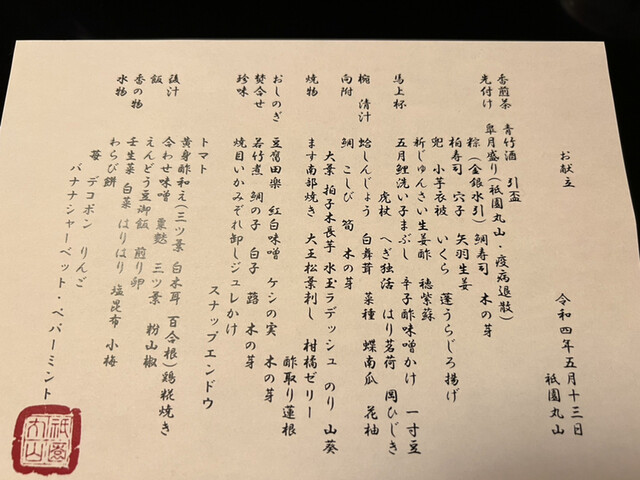 お献立
令和四年五月十三日
祇園丸山
香煎茶
青竹酒 引盃
先付け
皐月盛り(祇園丸山・疫病退散)
粽(金銀水引) 鯛寿司 木の芽
柏寿司 穴子 矢羽生姜
兜 小芋衣被 いくら 蓬うらじろ揚げ
馬上杯
祈じゅんさい生姜酢 穂紫蘇 一寸豆
五月鯉洗い子まぶし 辛子酢味噌かけ
虎杖 へぎ独活 はり茗荷 岡ひじき
椀 清汁
蛤しんじょう 白舞茸 菜種 蝶南瓜 花柚
向附
鯛 こしび 筍 木の芽
大葉 拍子木長芋 水玉ラデッシュ のり 山葵
焼物
ます南部焼き 大王松葉刺し 柑橘ゼリー
酢取り蓮根
おしのぎ
豆腐田楽 紅白味噌 ケシの実 木の芽
焚合せ
若竹煮 鯛の子 白子 蕗 木の芽
珍味
焼目いかみぞれ卸しジュレかけ
スナップエンドウ
トマト
黄身酢和え(三ツ葉 白木耳 百合根)鶏糀焼き
後汁
合わせ味噌 粟麩 三ツ葉 粉山椒
飯
えんどう豆御飯 煎り卵
香の物
壬生菜 白菜 はりはり 塩昆布 小梅
水物
わらび餅
苺 デコポン りんご
バナナシャーベット・ペパーミント
祇園丸山